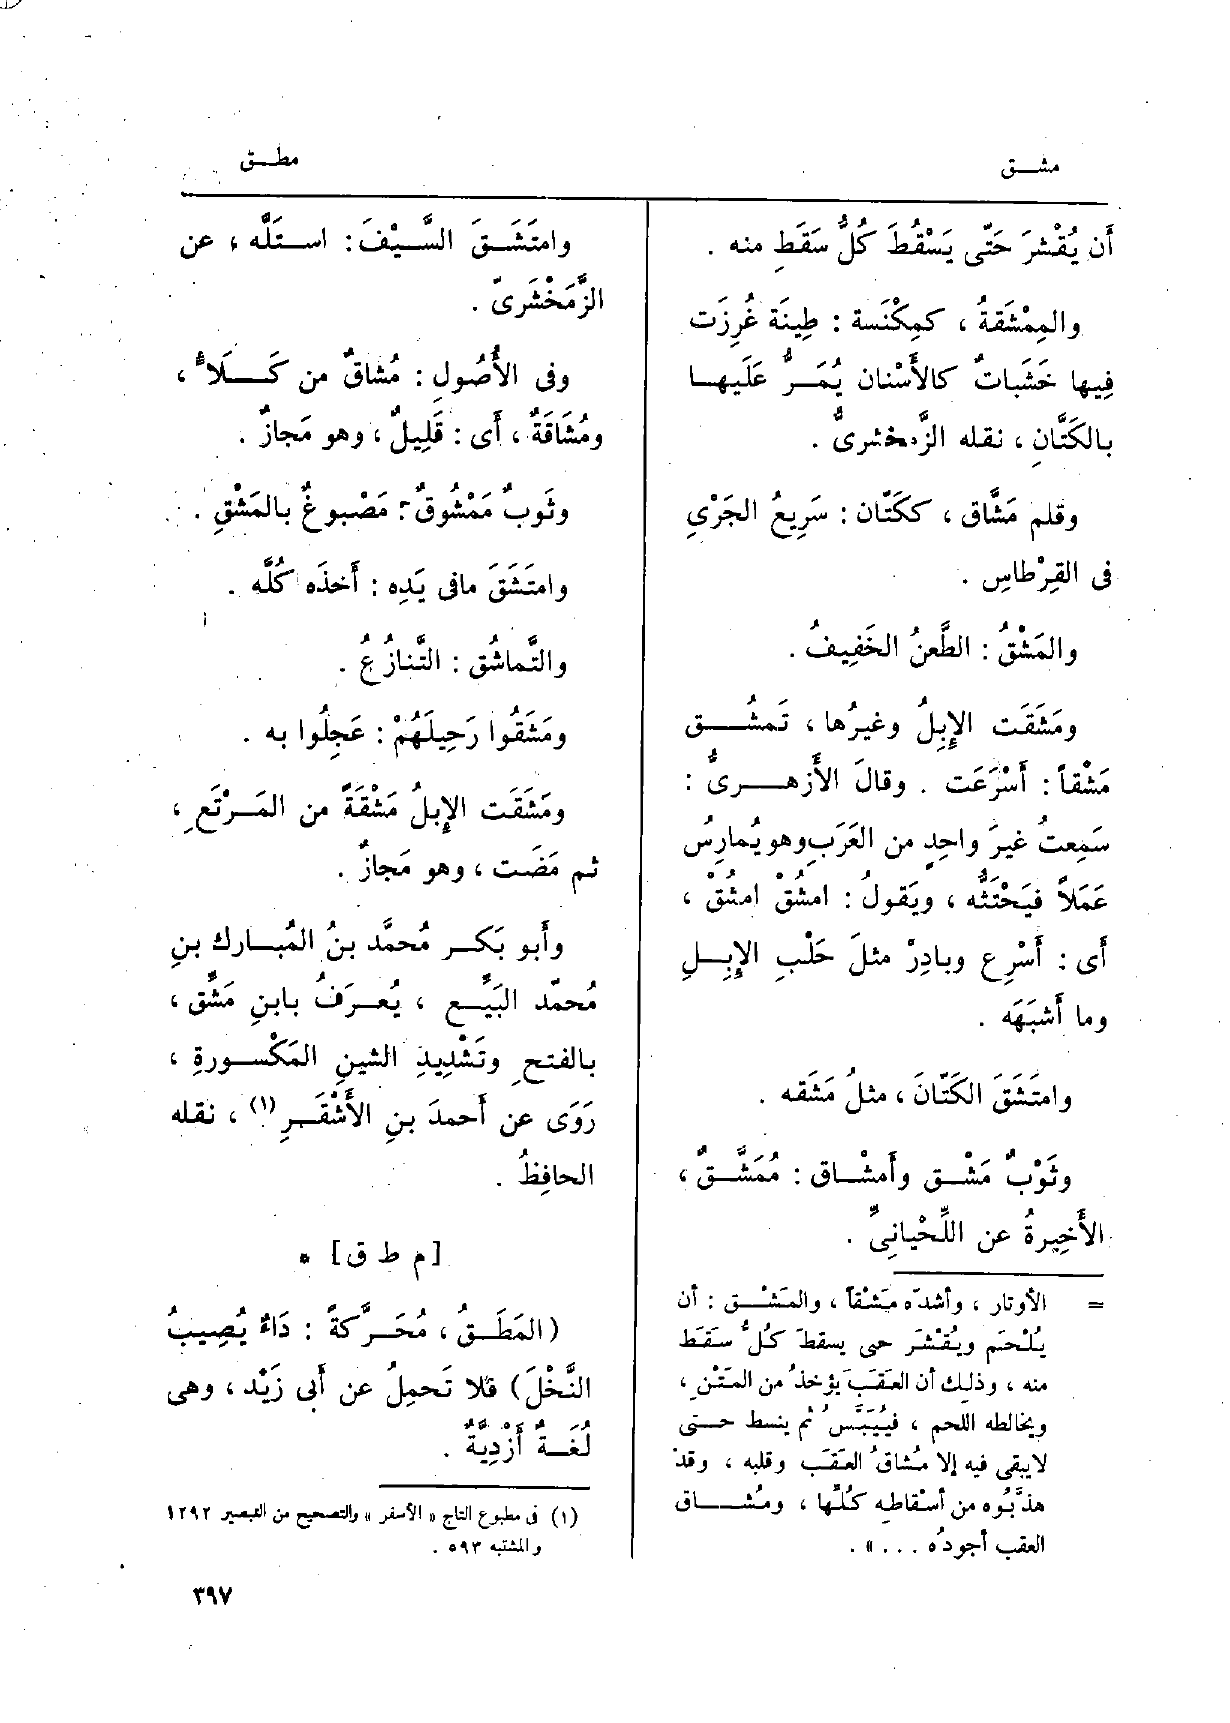 مشــق
مطــق
أَن يُقْشرَ حَتّى يَسْقُطَ كُلُّ سَقَطٍ منه .
والمِمْشَقةُ ، كمِكْنَسة : طِينَة غُرِزَت
فِيها خَشَباتٌ كالأَسْنان يُمَرُّ عَلَيها
بالكَتَّانِ ، نقله الزَّمخشرىُّ .
وقلم مَشَّاق ، ككَتّان : سَرِيعُ الجَرْىِ
فى القِرْطاسِ .
والمَشْقُ : الطَّعنُ الخَفِيفُ .
ومَشَقَت الإِبِلُ وغيرُها ، تَمشُــق
مَشْقاً : أَسْرَعَت . وقالَ الأَزهــرىُّ :
سَمِعتُ غيرَ واحِدٍ من العَرَبِ وهو يُمارِسُ
عَمَلاً فيَحْتَثُّه ، ويَقولُ : امشُقْ امشُقْ ،
أى : أَسْرِع وبادِرْ مثلَ حَلْبِ الإِبِــلِ
وما أَشبَهَه .
وامتَشَقَ الكَتّانَ ، مثلُ مَشَقه .
وثَوْبٌ مَشْــق وأَمشْــاق : مُمَشَّــقٌ ،
الأَخِيرةُ عن اللِّحْيانِىِّ .
= الأوتار ، وأشدّه مَشْقاً ، والمَشْــق : أن
يُلْحَم ويُقْشَرَ حتى يسقطَ كلُّ سَقَط
منه ، وذلك أن العقَبَ يؤخذُ من المَتْنِ ،
ويخالطه اللحم ، فيُيَبَّسُ ثم ينسط حــتى
لايبقى فيه إلا مُشاقُ العقَب وقلبه ، وقد
هذّبُوه من أسْقاطِه كلِّها ، ومُشــاق
العقب أجودُه . . . » .
وامتَشَــقَ السَّــيْفَ : استَلَّه ، عن
الزَّمَخْشَرىّ .
وفى الأُصُولِ : مُشاقٌ من كَــلَاءٍ ،
ومُشَاقَةٌ ، أَى : قَلِيلٌ ، وهو مَجازٌ .
وثَوبٌ مَمْشُوقٌ : مَصْبوغٌ بالمَشْقِ .
وامتَشَقَ مافى يَدِه : أَخذَه كُلَّه .
والتَّماشُق : التَّنازُعُ .
ومَشَقُوا رَحِيلَهُمْ : عَجِلُوا به .
ومَشَقَت الإِبلُ مَشْقَةً من المَرْتَعِ ،
ثم مَضَت ، وهو مَجازٌ .
وأَبو بَكــر مُحمَّد بنُ المُبــارك بنِ
مُحمّد البَيِّــع ، يُعــرَفُ بابنِ مَشِّق ،
بالفتحِ وتَشْدِيدِ الشينِ المَكْســورةِ ،
رَوَى عن أَحمدَ بنِ الأَشْقَــرِ (١) ، نقله
الحافِظُ .
[م ط ق] *
(المَطَقُ ، مُحَــرَّكةً : دَاءٌ يُصِيبُ
النَّخْلَ) فلا تَحمِلُ عن أَبى زَيْد ، وهى
لُغَــةٌ أَزْدِيَّةٌ .
(١) فى مطبوع التاج « الأسفر » والتصحيح من التبصير ١٢٩٢
والمشتبه ٥٩٣ .
٣٩٧